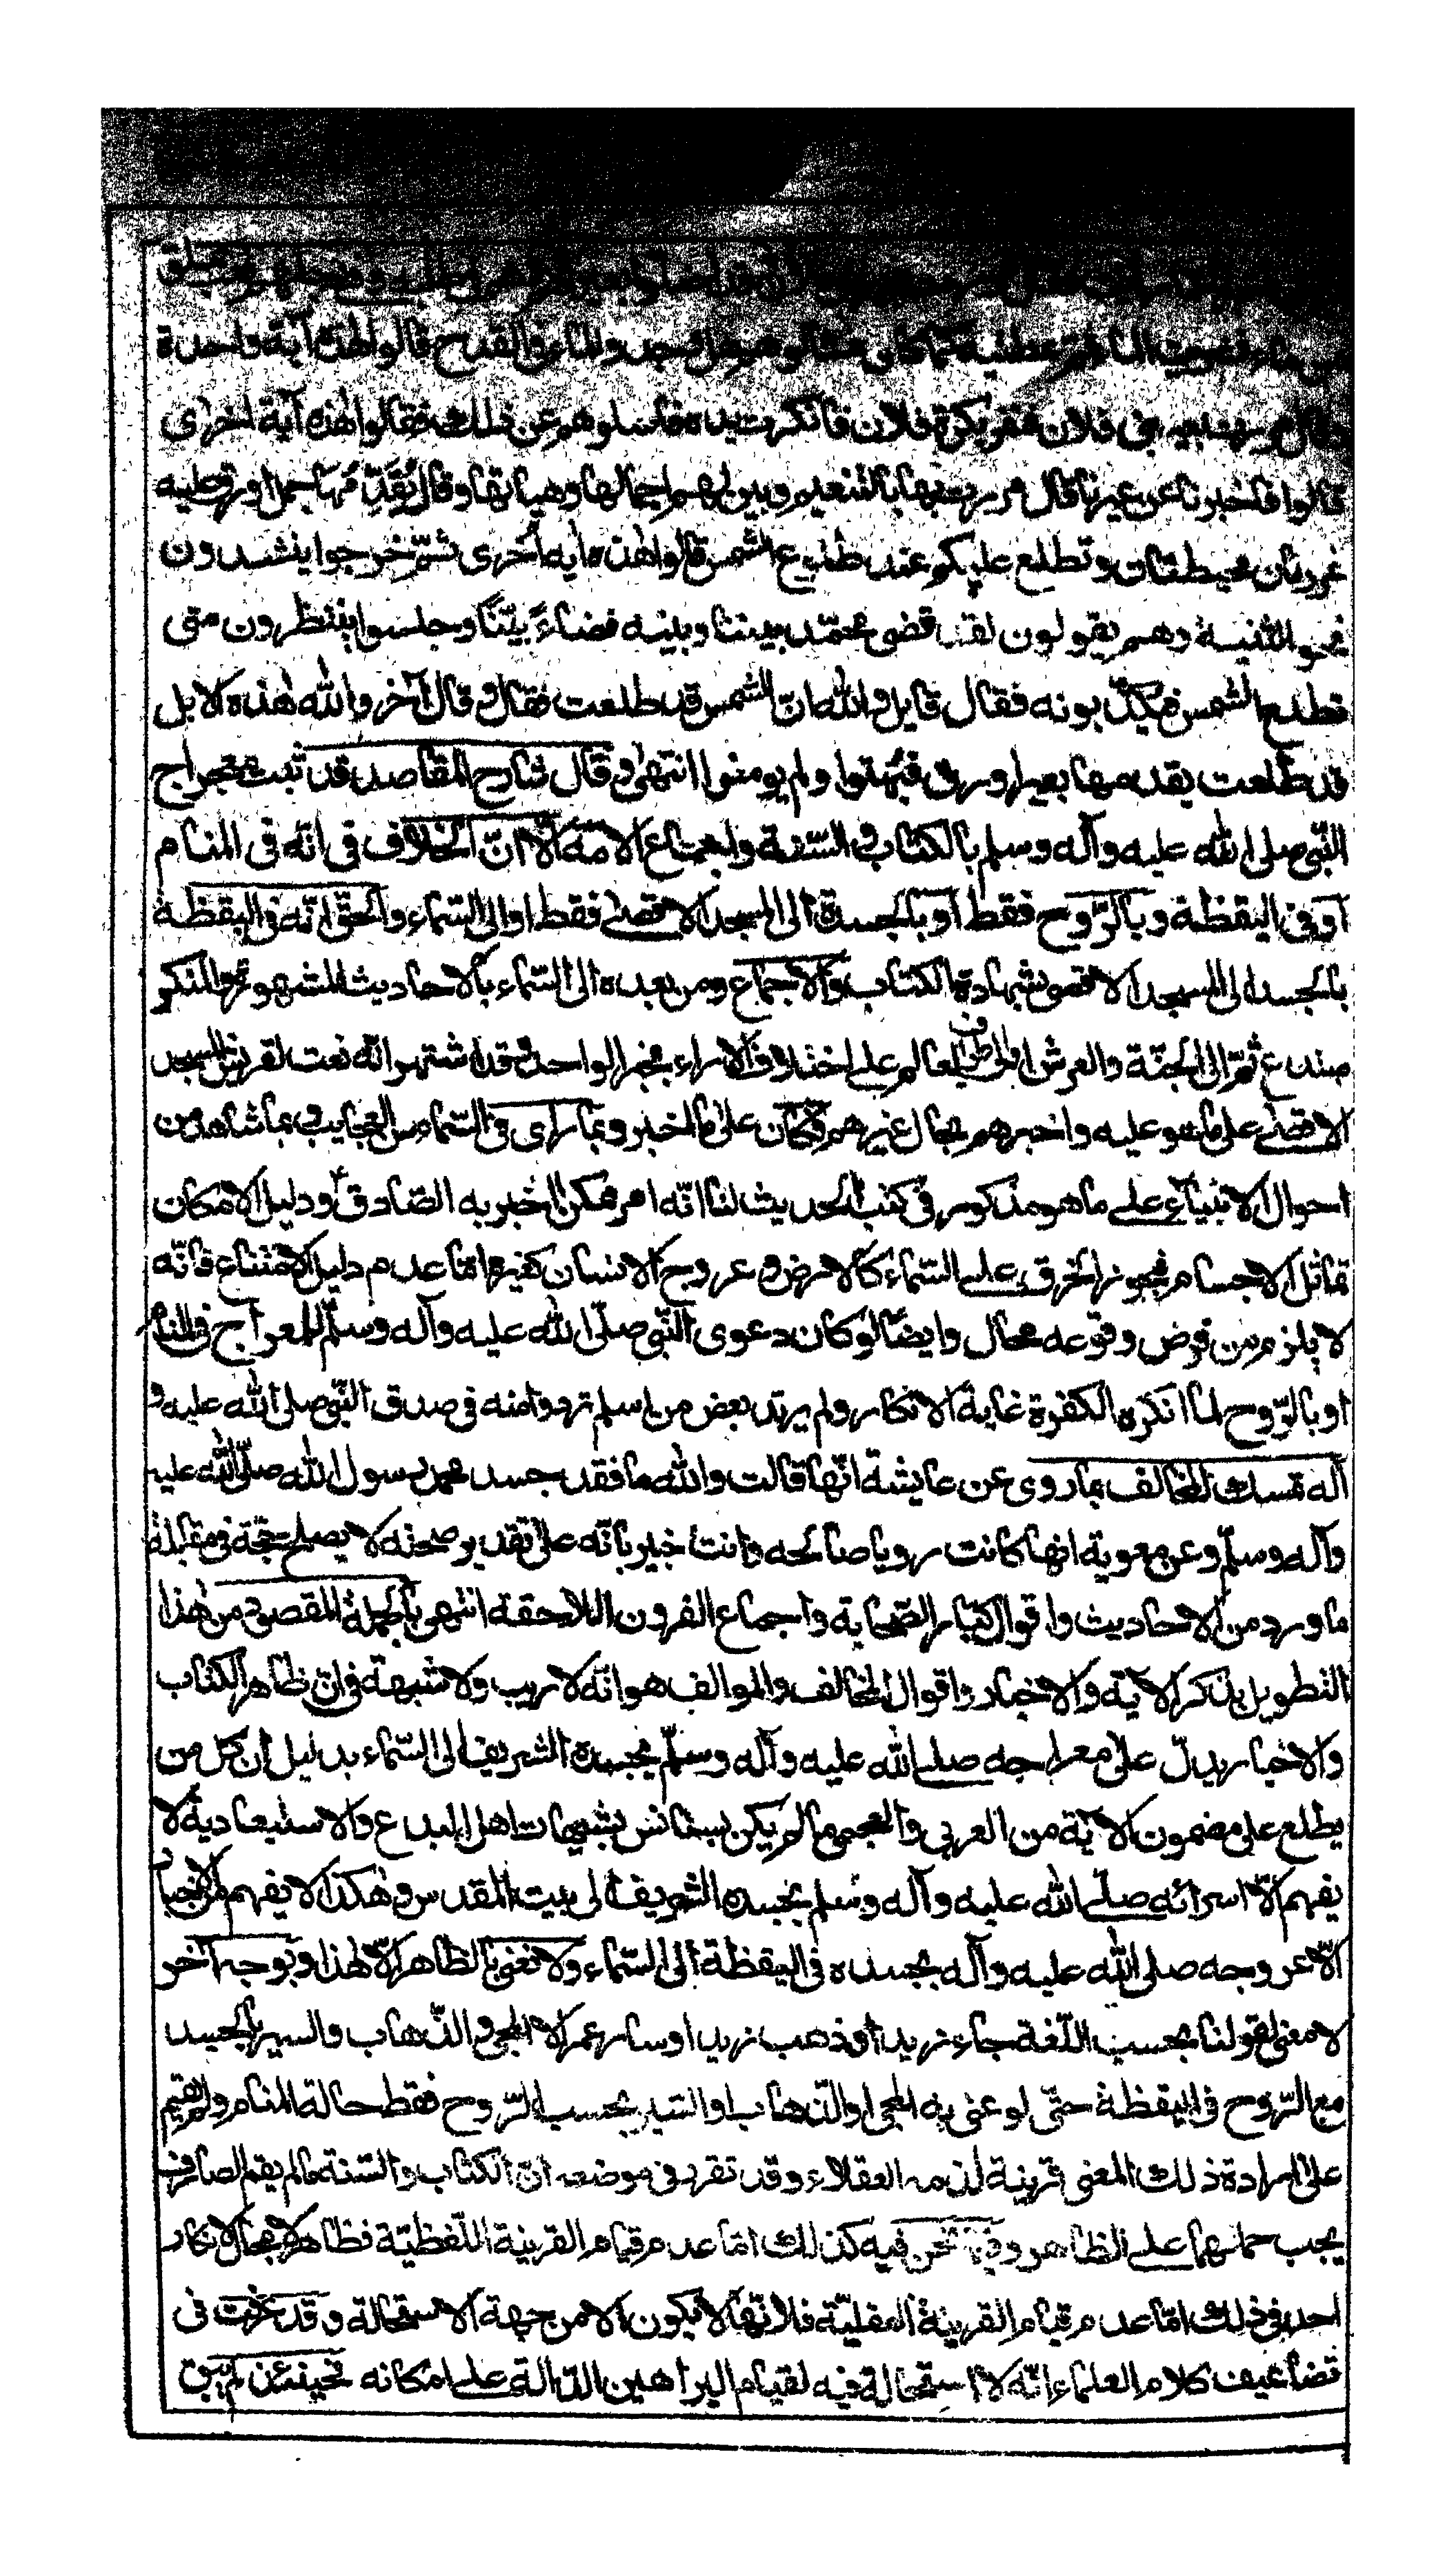 قالوا هذه آية واحدة
فلان فانكرت يده فاسئلوهم عن ذلك فقالوا هذه آية اخرى
قالوا فاخبرنا عن عيرنا قال مررت بها بالتنعيم وبين لهم احمالها وهياتها وقال يقدمها جمل اورق عليه
غرارتان محيطتان وتطلع عليكم عند طلوع الشمس قالوا هذه ايه اخرى ثمّ خرجوا ينشدون
نحو الثنية وهم يقولون لقد قضى محمّد بيننا وبينه قضاءً بيّناً وجلسوا ينتظرون متى
تطلع الشمس فيكذّبونه فقال قايل والله انّ الشمس قد طلعت فقال وقال آخر والله هذه الابل
قد طلعت يقدمها بعير اورق فبُهتوا ولم يومنوا انتهى وقال شارح المقاصد قد ثبت معراج
النّبي صلى الله عليه وآله وسلم بالكتاب والسّنة واجماع الامّة الّا انّ الخلاف فى انّه فى المنام
او فى اليقظة وبالرّوح فقط او بالجسد الى المسجد الاقصى فقط او الى السّماء والحقّ انّه فى اليقظة
بالجسد الى المسجد الاقصى بشهادة الكتاب والاجماع ومن بعده الى السّماء بالاحاديث المشهوره والمنكر
مبتدع ثمّ الى الجنّة والعرش او الى طرف العالم على اختلاف الاراء بخبر الواحد وقد اشتهر انّه نعت لقريش المسجد
الاقصى على ما هو عليه واخبرهم بحال عيرهم فكان على ما اخبر وبما راى فى السّماء من العجايب وبما شاهد من
احوال الانبياء على ما هو مذكور فى كتب الحديث لنا انّه امر ممكن اخبر به الصّادق ودليل الامكان
تماثل الاجسام فيجوز الخرق على السّماء كالارض وعروج الانسان كغيره امّا عدم دليل الامتناع فانّه
لا يلزم من فرض وقوعه محال وايضًا لو كان دعوى النّبي صلّى الله عليه وآله وسلّم المعراج فى المنام
او بالرّوح لما انكره الكفرة غاية الانكار ولم يرتد بعض من اسلم تردوا منه فى صدق النّبي صلى الله عليه و
آله تمسك المخالف بما روى عن عايشة انّها قالت والله ما فقد جسد محمد رسول الله صلّى الله عليه
وآله وسلّم وعن معوية انها كانت رويا صالحه وانت خبير بانّه على تقدير صحته لا يصلح حجّة فى مقابلة
ما ورد من الاحاديث واقوال كبار الصّحابة واجماع القرون اللاحقة انتهى بالجملة المقصود من هذا
التطويل بذكر الآية والاخبار واقوال المخالف والموالف هو انّه لا ريب ولا شبهة فى انّ ظاهر الكتاب
والاخبار يدلّ على معراجه صلى الله عليه وآله وسلّم بجسده الشريف الى السّماء بدليل ان كلّ من
يطلع على مضمون الآية من العربى والعجمى ما لم يكن يستانس بشبهات اهل البدع والاستبعادية لا
يفهم الّا اسرائه صلى الله عليه وآله وسلم بجسده الشريف الى بيت المقدس وهكذا لا يفهم من الاخبار
الّا عروجه صلى الله عليه وآله بجسده فى اليقظة الى السّماء ولا نعنى بالظاهر الّا هذا وبوجه آخر
لا معنى لقولنا بحسب اللّغة جاء زيد او ذهب زيد او سار عمر الا المجى والذّهاب والسير بالجسد
مع الرّوح فى اليقظة حتّى لو عنى به المجى او الذّهاب او السّير بحسب الرّوح فقط حالة المنام ولم يقم
على ارادة ذلك المعنى قرينة لذمه العقلاء وقد تقرر فى موضعه انّ الكتاب والسّنة ما لم يقم الصارف
يجب حملهما على الظاهر وفيما نحن فيه كذلك امّا عدم قيام القرينة اللّفظيّة فظاهر لا مجال لانكار
احد فى ذلك امّا عدم قيام القرينة العقليّة فلانّها لا يكون الا من جهة الاستحالة وقد عرفت فى
تضاعيف كلام العلماء انّه لا استحالة فيه لقيام البراهين الدّالة على امكانه فحينئذ لم يبق